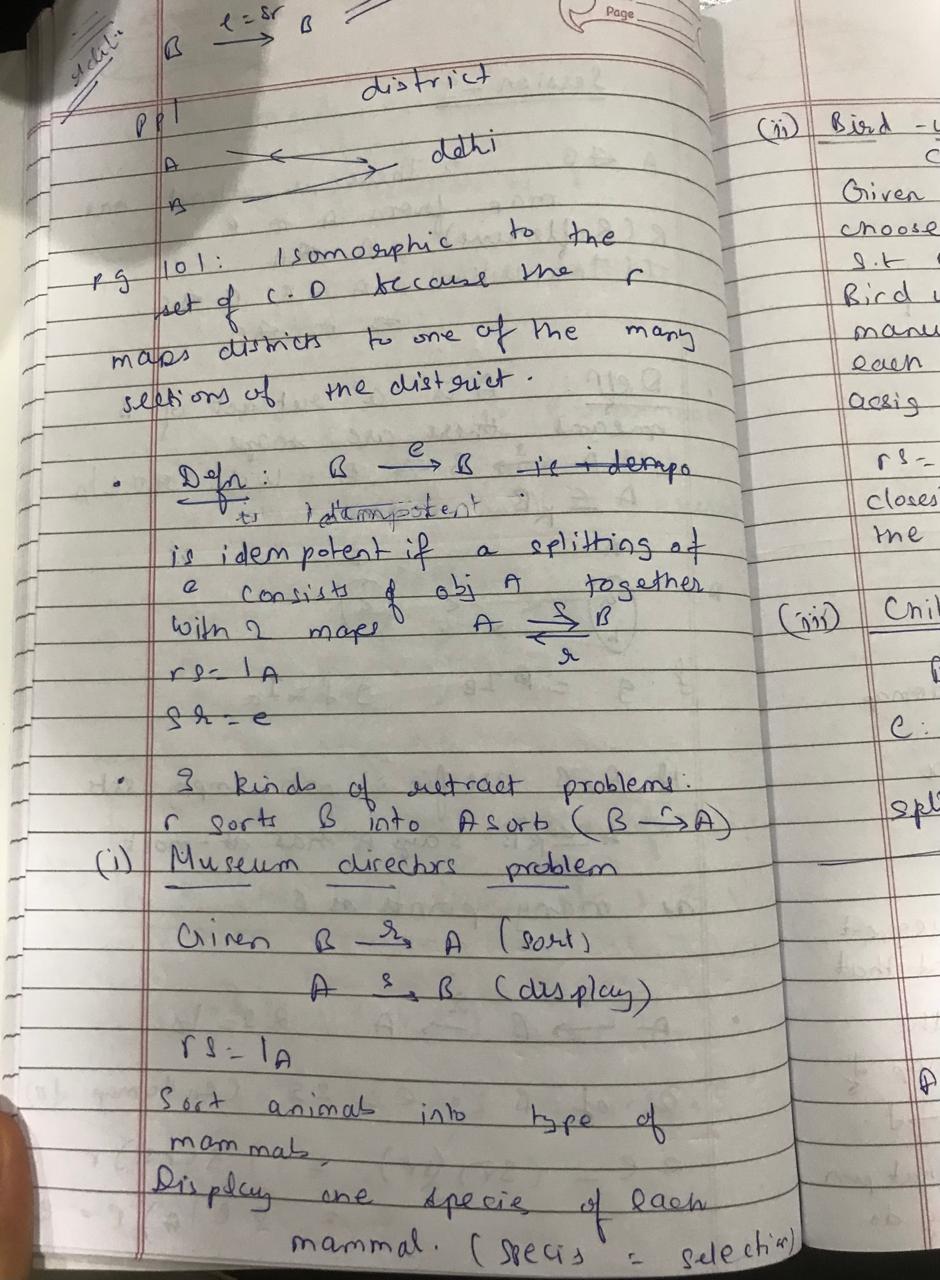 Page
B e = sr → B
district
ppl
A delhi
B
pg 101: Isomorphic to the
set of C.D because the r
maps districts to one of the many
sections of the district.
• Defn: B e → B is + dempo
is idempotent
is idempotent if a splitting of
e consists of obj A together
with 2 maps A s ⇄ r B
rs = 1A
sr = e
• 3 kinds of retract problems:
r sorts B into A sorts (B r → A)
(i) Museum directors problem
Given B r → A (sort)
A s → B (display)
rs = 1A
Sort animals into type of
mammals,
Display one specie of each
mammal. (specis = selection)
(ii) Bird -
Given
choose
s.t
Bird
manu
each
assig
rs =
closes
the
(iii) Chil
e:
spl
A